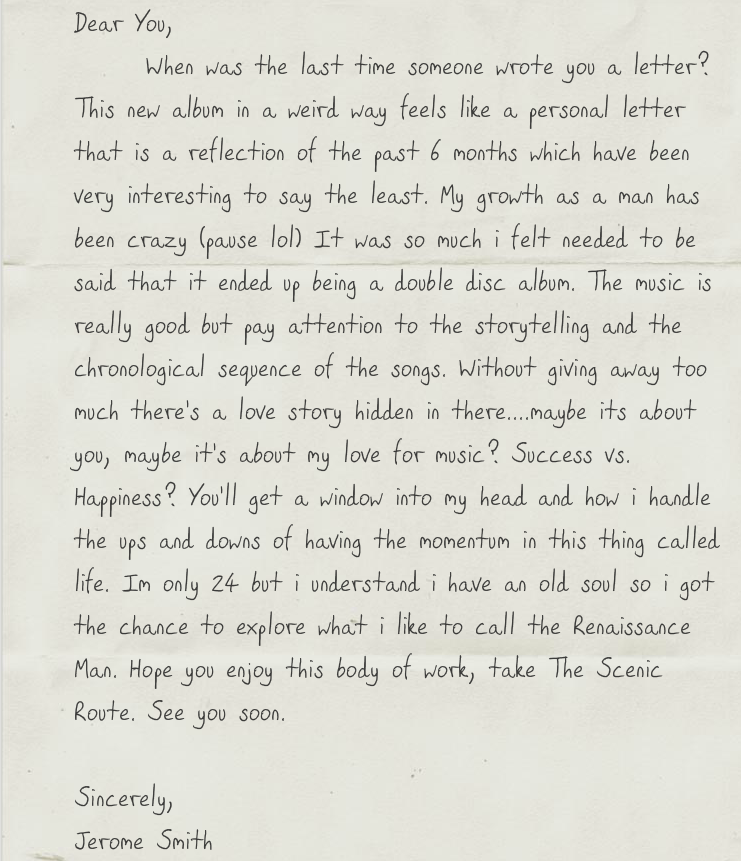 Dear You,
When was the last time someone wrote you a letter?
This new album in a weird way feels like a personal letter
that is a reflection of the past 6 months which have been
very interesting to say the least. My growth as a man has
been crazy (pause lol) It was so much i felt needed to be
said that it ended up being a double disc album. The music is
really good but pay attention to the storytelling and the
chronological sequence of the songs. Without giving away too
much there's a love story hidden in there....maybe its about
you, maybe it's about my love for music? Success vs.
Happiness? You'll get a window into my head and how i handle
the ups and downs of having the momentum in this thing called
life. Im only 24 but i understand i have an old soul so i got
the chance to explore what i like to call the Renaissance
Man. Hope you enjoy this body of work, take The Scenic
Route. See you soon.
Sincerely,
Jerome Smith